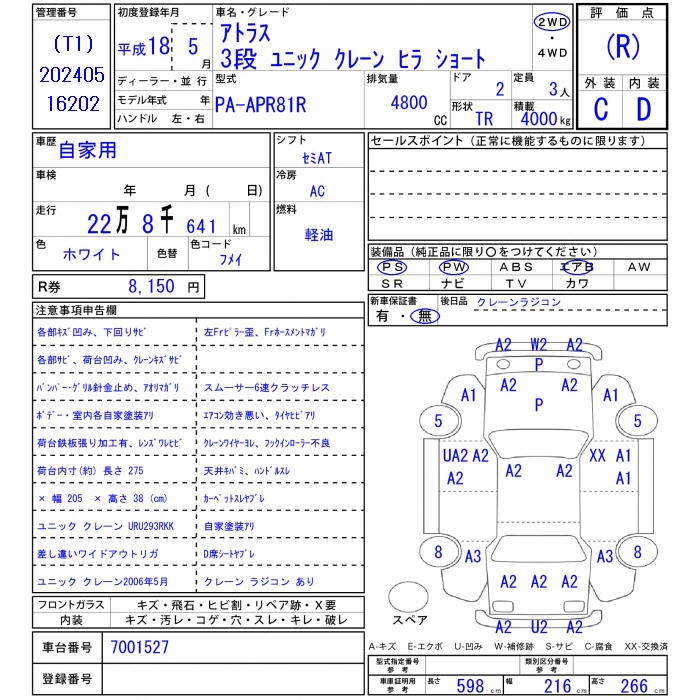 管理番号
(T1)
202405
16202
初度登録年月
平成18 5月
車名・グレード
アトラス
3段 ユニック クレーン ヒラ ショート
2WD
・
4WD
評価点
(R)
外装 内装
C D
ディーラー・並行
モデル年式 年
ハンドル 左・右
型式
PA-APR81R
排気量
4800
CC
ドア
2
定員
3人
形状
TR
積載
4000kg
車歴
自家用
車検
年 月( 日)
走行
22万8千641 km
色
ホワイト
色替
色コード
フメイ
シフト
セミAT
冷房
AC
燃料
軽油
セールスポイント(正常に機能するものに限ります)
装備品(純正品に限り〇をつけてください)
PS PW ABS エアB AW
SR ナビ TV カワ
R券 8,150 円
新車保証書
有・無
後日品 クレーンラジコン
注意事項申告欄
各部キズ凹み、下回りサビ
左Frピラー歪、Frホースメントマガリ
各部サビ、荷台凹み、クレーンキズサビ
バンパー・グリル針金止め、アオリマガリ
スムーサー6速クラッチレス
ボデー・室内各自家塗装アリ
エアコン効き悪い、タイヤヒビアリ
荷台鉄板張り加工有、レンズワレヒビ
クレーンワイヤーヨレ、フックインローラー不良
荷台内寸(約) 長さ 275
天井キバミ、ハンドルスレ
× 幅 205 × 高さ 38 (cm)
カーペットスレヤブレ
ユニック クレーン URU293RKK
自家塗装アリ
差し違いワイドアウトリガ
D席シートヤブレ
ユニック クレーン2006年5月
クレーン ラジコン あり
フロントガラス
キズ・飛石・ヒビ割・リペア跡・X要
内装
キズ・汚レ・コゲ・穴・スレ・キレ・破レ
車台番号 7001527
登録番号
A2 W2 A2
P
A1 A2 A2 A1
P
5 5
UA2 A2 XX A1
A2 A2 A2 A1
8 8
A3 A3
A2 A2 A2
A2 U2 A2
スペア
A-キズ E-エクボ U-凹み W-補修跡 S-サビ C-腐食 XX-交換済
型式指定番号
参考
類別区分番号
参考
車庫証明用
参考
長さ 598 cm
幅 216 cm
高さ 266 cm